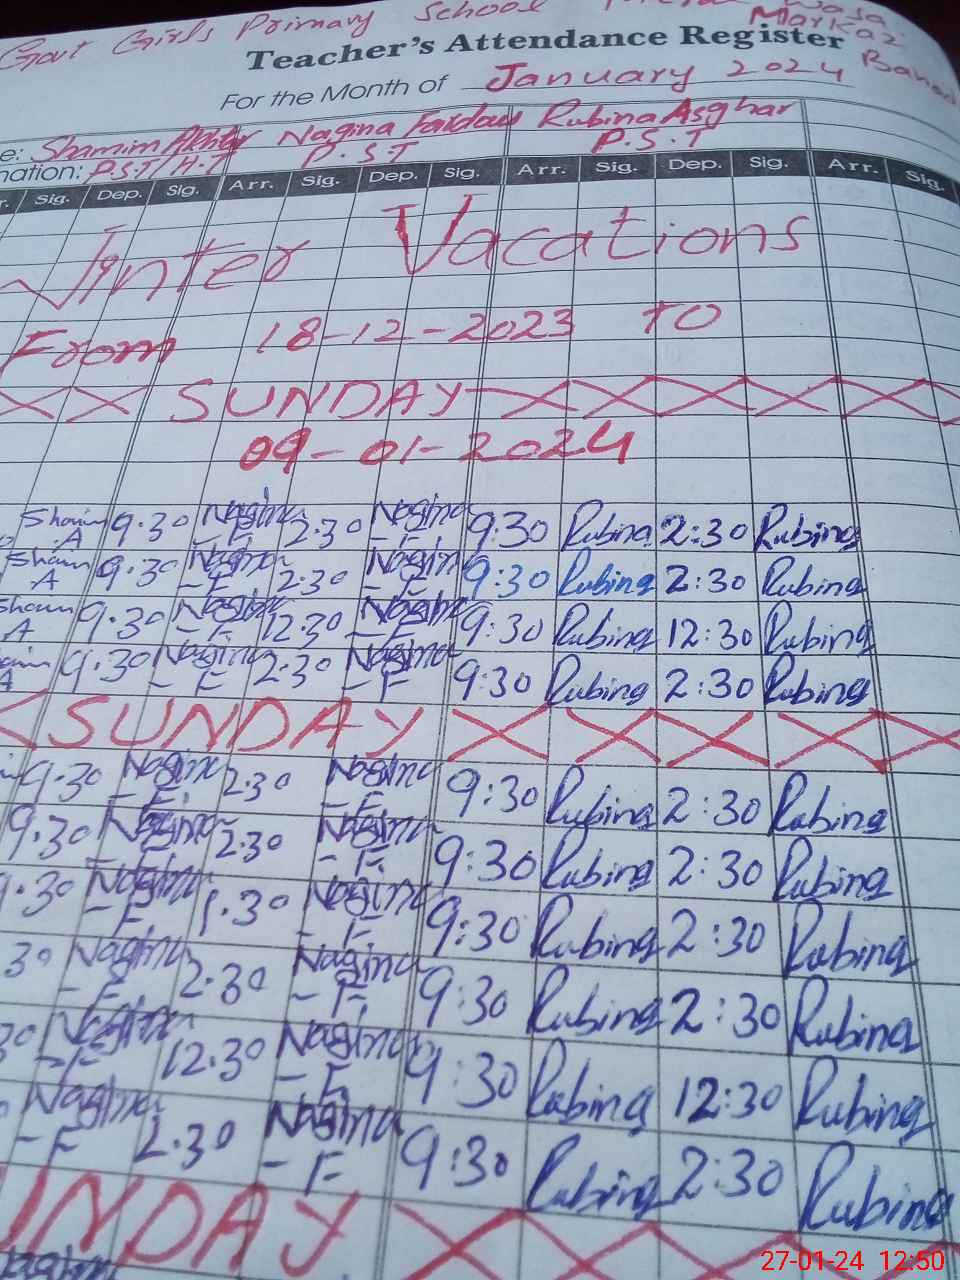 Govt Girls Primary School Wasa
Markaz
Teacher's Attendance Register
For the Month of January 2024
e: Shamim Akhtar Nagina Faridau Rubina Asghar
nation: P.S.T/H.T P.S.T P.S.T
r. Sig. Dep. Sig. Arr. Sig. Dep. Sig. Arr. Sig. Dep. Sig. Arr. Sig.
Winter Vacations
From 18-12-2023 to
XX SUNDAY XXXXX
09-01-2024
Shaim A 9.30 Nagina - F 2.30 Nagina - F 9:30 Rubina 2:30 Rubina
Sham A 9.30 Nagina - F 2.30 Nagina - F 9:30 Rubina 2:30 Rubina
Sham A 9.30 Nagina - F 12.30 Nagina - F 9:30 Rubina 12:30 Rubina
aim A 9.30 Nagina - F 2.30 Nagina - F 9:30 Rubina 2:30 Rubina
X SUNDAY XXXXX
9.30 Nagina - F 2.30 Nagina - F 9:30 Rubina 2:30 Rubina
9.30 Nagina - F 2.30 Nagina - F 9:30 Rubina 2:30 Rubina
9.30 Nagina - F 1.30 Nagina - F 9:30 Rubina 2:30 Rubina
30 Nagina - F 2.30 Nagina - F 9:30 Rubina 2:30 Rubina
30 Nagina - F 12.30 Nagina - F 9:30 Rubina 12:30 Rubina
Nagina - F 2.30 Nagina - F 9:30 Rubina 2:30 Rubina
UNDAY XXXX
27-01-24 12:50